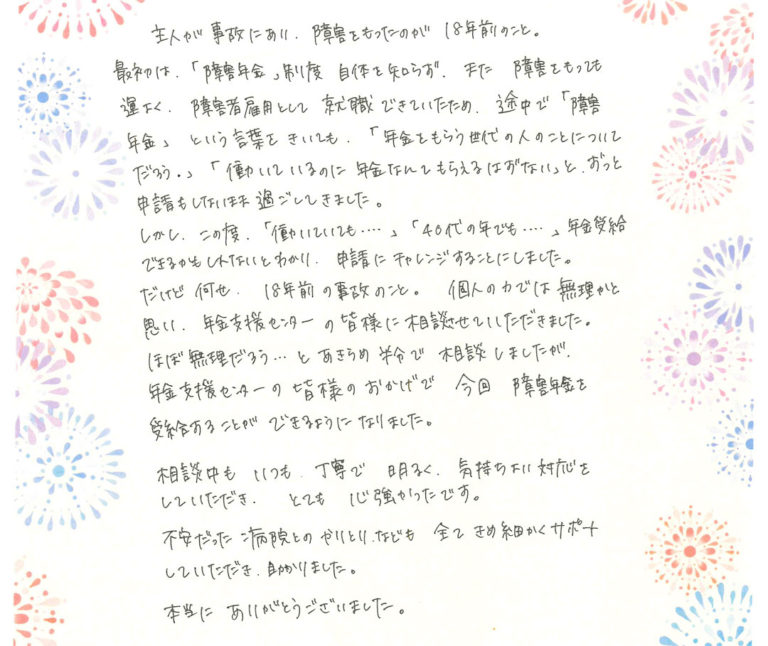 主人が事故にあい、障害をもったのが 18年前のこと。
最初は、「障害年金」制度 自体を知らず、また 障害をもっても
運よく、障害者雇用として 就職できていたため、途中で「障害
年金」という言葉をきいても、「年金をもらう世代の人のことについて
だろう。」「働いているのに 年金なんてもらえるはずない」と、ずっと
申請もしないまま 過ごしてきました。
しかし、この度、「働いていても‥‥」「40代の年でも‥‥」年金受給
できるかもしれないとわかり、申請に チャレンジすることにしました。
だけど 何せ、18年前の事故のこと。 個人の力では 無理かと
思い、年金支援センターの皆様に相談させていただきました。
ほぼ無理だろう…と あきらめ半分で 相談しましたが、
年金支援センターの 皆様のおかげで 今回 障害年金を
受給することが できるようになりました。
相談中も いつも、丁寧で 明るく、気持ちよい対応を
していただき、 とても 心強かったです。
不安だった 病院とのやりとり、なども 全て きめ細かくサポート
していただき、助かりました。
本当に ありがとうございました。